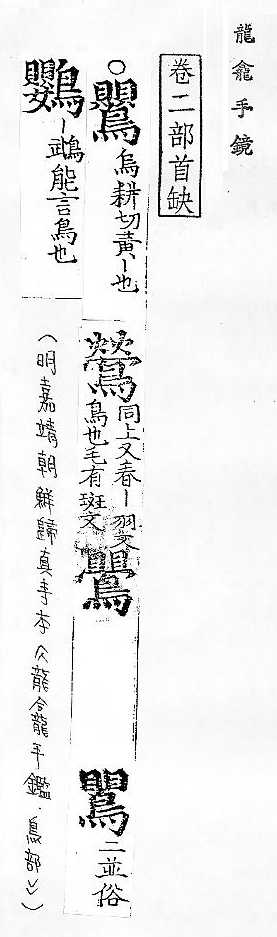 龍龕手鏡
卷二部首缺
○鸎烏耕切黃丨也
鶯同上又春丨羽文
鳥也毛有斑文
二並俗
鸚丨䳇能言鳥也
(明嘉靖朝鮮歸真寺本《龍龕手鑑.鳥部》)